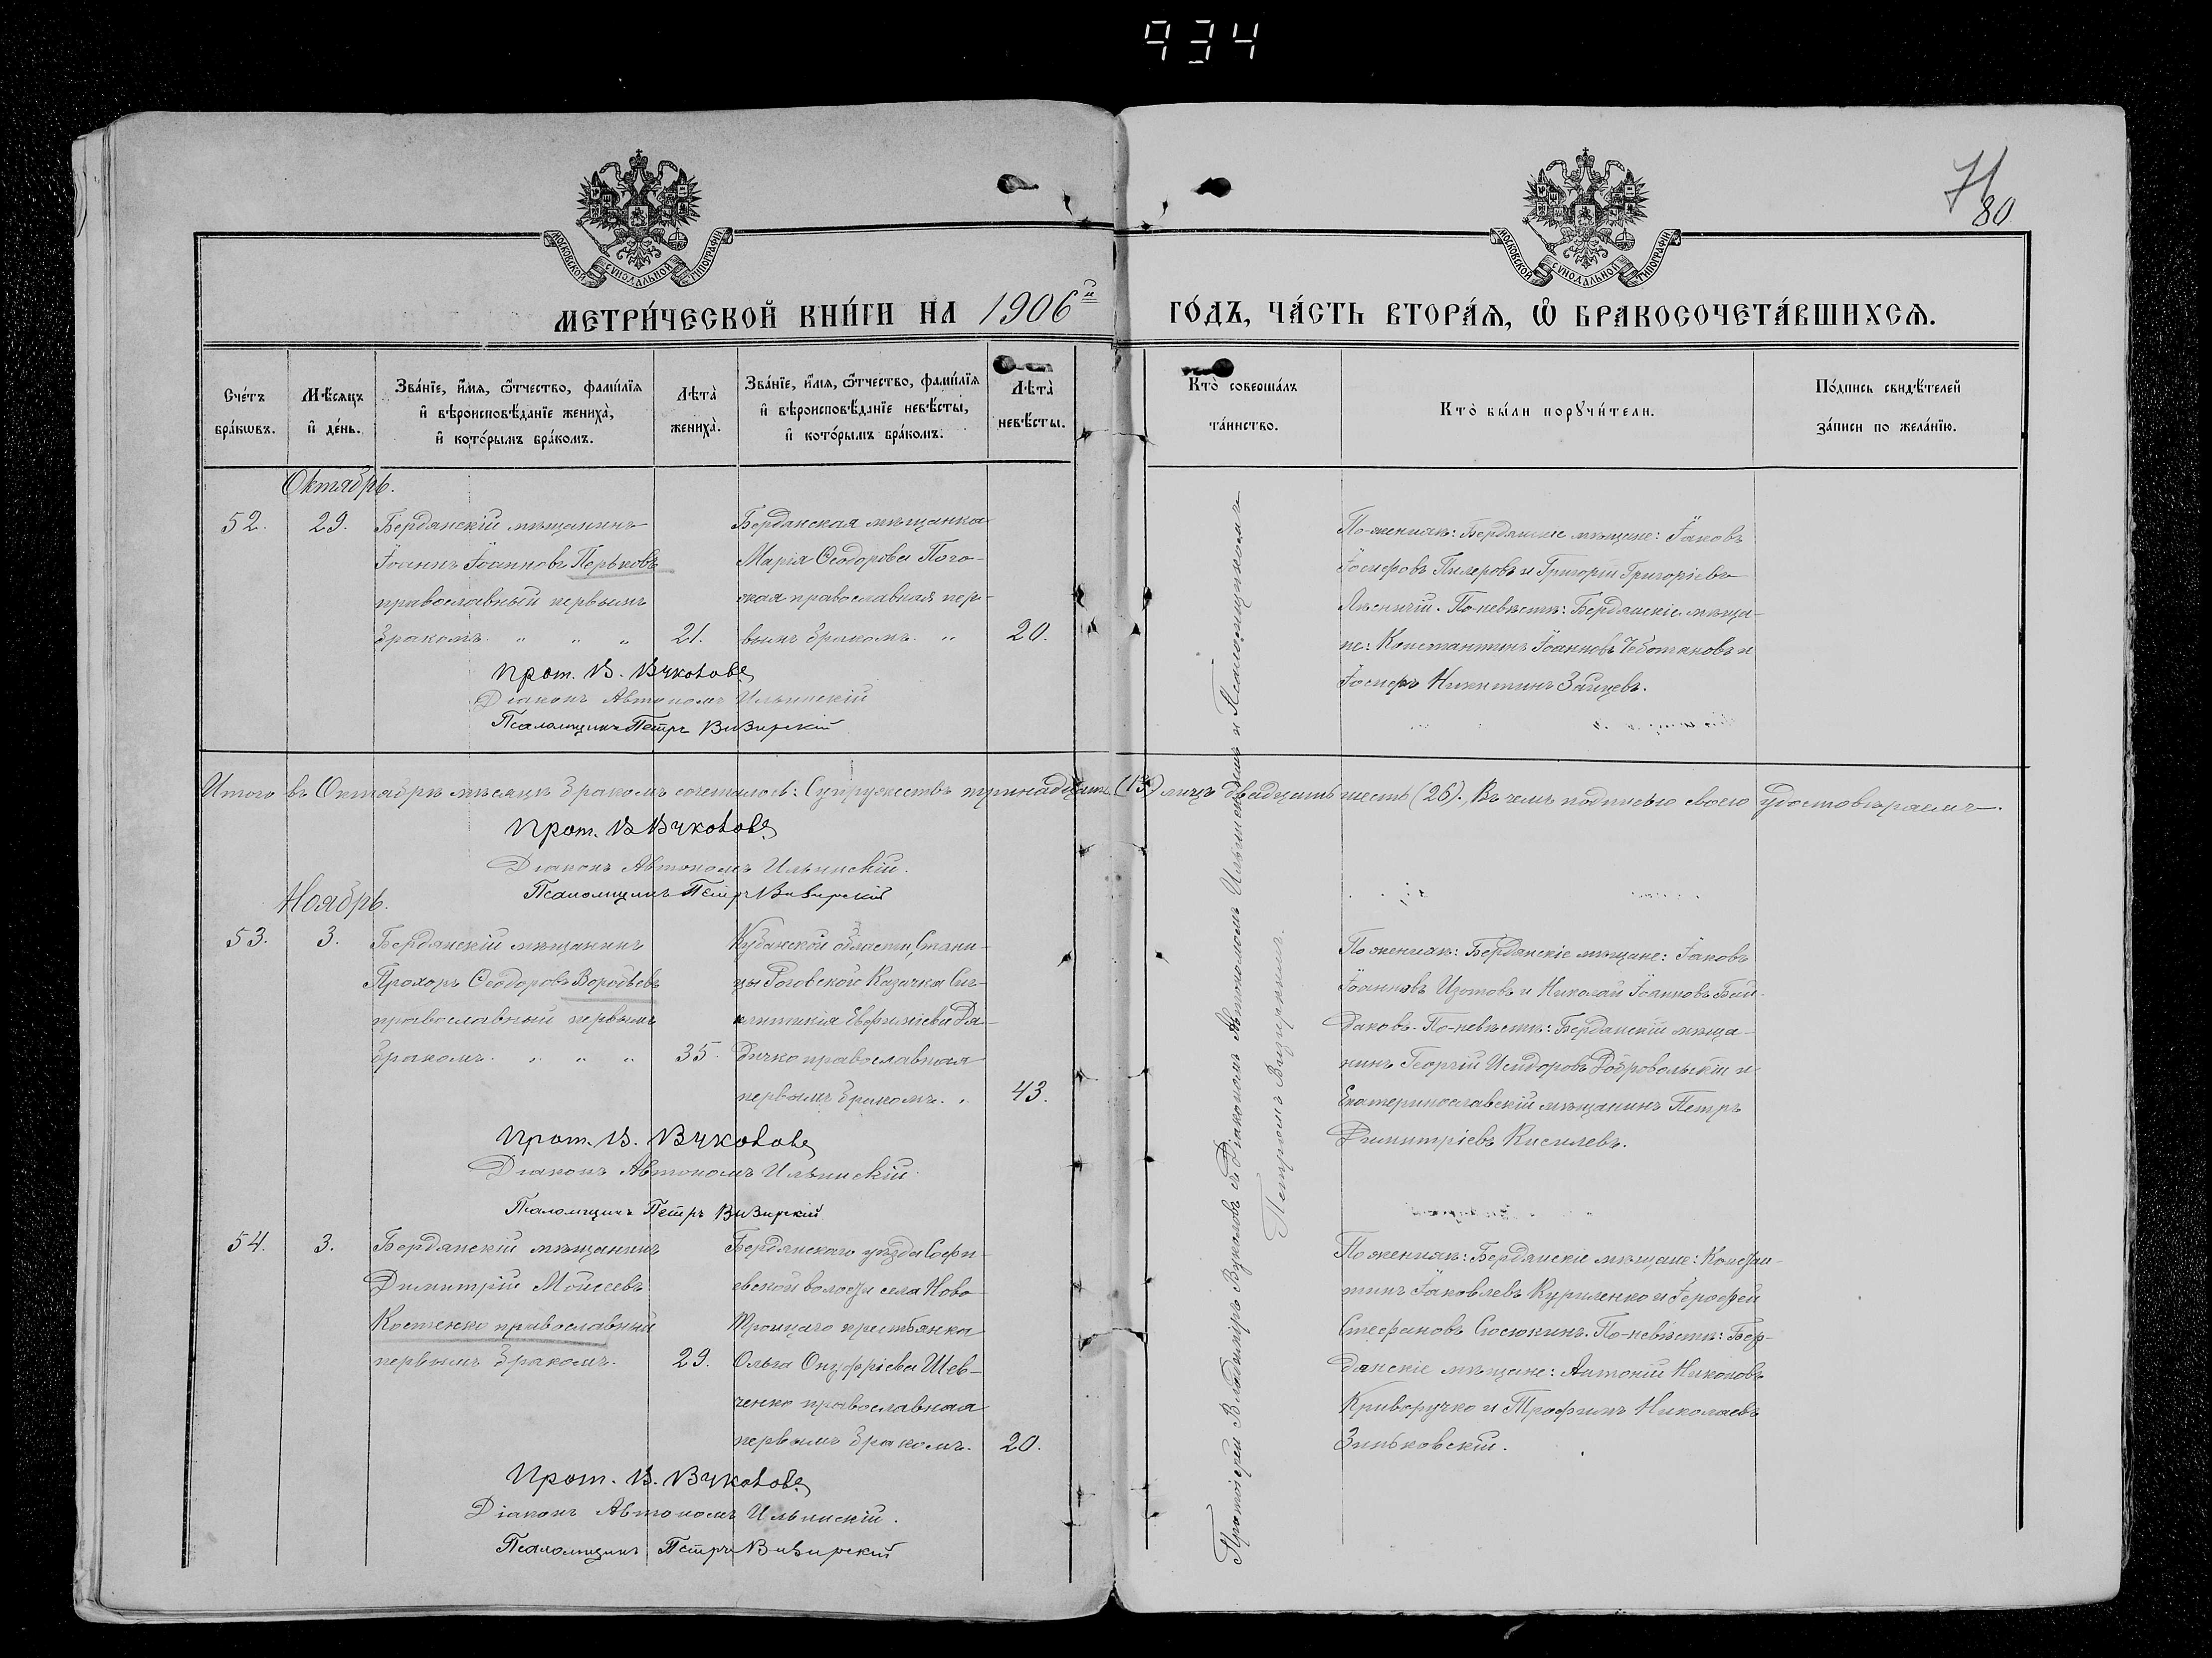 934
71
80
МОСКОВСКОЙ СѴНОДАЛЬНОЙ ТИПОГРАФІИ
МОСКОВСКОЙ СѴНОДАЛЬНОЙ ТИПОГРАФІИ
МЕТРИ́ЧЕСКОЙ КНИ́ГИ НА 1906й
ГО́ДЪ, ЧА́СТЬ ВТОРА́Я, Ѡ҆ БРАКОСОЧЕТА́ВШИХСЯ.
Сче́тъ бра́кѡвъ.
Мѣ́сяцъ и҆ де́нь.
Зва́нїе, и҆́мя, ѻ҆́тчество, фами́лїя
и҆ вѣроисповѣ́данїе жениха̀,
и҆ кото́рымъ бра́комъ.
Лѣта̀ жениха̀.
Зва́нїе, и҆́мя, ѻ҆́тчество, фами́лїя
и҆ вѣроисповѣ́данїе невѣ́сты,
и҆ кото́рымъ бра́комъ.
Лѣта̀ невѣ́сты.
Кто̀ соверша́лъ та́инство.
Кто̀ бы́ли порꙋчи́тели.
По́дпись свидѣ́телей за́писи по жела́нїю.
Октябрь.
52.
29.
Бердянскій мѣщанинъ
Іоаннъ Іоанновъ Порьковъ
православный первымъ
бракомъ. „ „ „
21.
Бердянская мѣщанка
Марія Ѳеодорова Пого-
ская православная пер-
вымъ бракомъ. „
20.
По женихѣ: Бердянскіе мѣщане: Іаковъ
Іосифовъ и Григорій Григорьевъ
По невѣстѣ: Бердянскіе мѣща-
не: Константинъ Іоанновъ Чеботановъ и
Іосифъ Никитинъ Зайцевъ.
Прот. В. Вуколовъ
Діаконъ Автономъ Ильинскій
Псаломщикъ Петръ Визирскій
Итого въ Октябрѣ мѣсяцѣ бракомъ сочеталось: Супружествъ тринадцать (13) лицъ двадцать шесть (26). Въ чемъ подписью своею удостовѣряемъ.
Прот. В Вуколовъ
Діаконъ Автономъ Ильинскій.
Псаломщикъ Петръ Визирскій
Ноябрь.
53.
3.
Бердянскій мѣщанинъ
Прохоръ Ѳеодоровъ Воробьевъ
православный первымъ
бракомъ. „ „ „
35.
Кубанской области, Стани-
цы Роговской Казачка Син-
клитикія Евфиміева Дя-
дичко православная
первымъ бракомъ. „
43.
По женихѣ: Бердянскіе мѣщане: Іаковъ
Іоанновъ Изотовъ и Николай Іоанновъ Бай-
даковъ. По невѣстѣ: Бердянскій мѣща-
нинъ Георгій Исидоровъ Добровольскій и
Екатеринославскій мѣщанинъ Петръ
Димитріевъ Киселевъ.
Прот. В. Вуколовъ
Діаконъ Автономъ Ильинскій
Псаломщикъ Петръ Визирскій
54.
3.
Бердянскій мѣщанинъ
Димитрій Моисеевъ
Костенко православный
первымъ бракомъ.
29.
Бердянскаго уѣзда Софи-
евской волости села Ново
Троицкаго крестьянка
Ольга Онуфріева Шев-
ченко православная
первымъ бракомъ.
20.
По женихѣ: Бердянскіе мѣщане: Констан-
тинъ Іаковлевъ Куриленко и Іерофей
Стефановъ Сосюкинъ. По невѣстѣ: Бер-
дянскіе мѣщане: Антоній Никоновъ
Криворучко и Трофимъ Николаевъ
Зиньковскій.
Прот. В. Вуколовъ
Діаконъ Автономъ Ильинскій.
Псаломщикъ Петръ Визирскій
Протоіерей Владиміръ Вуколовъ съ Діакономъ Автономомъ Ильинскимъ и Псаломщикомъ
Петромъ Визирскимъ.